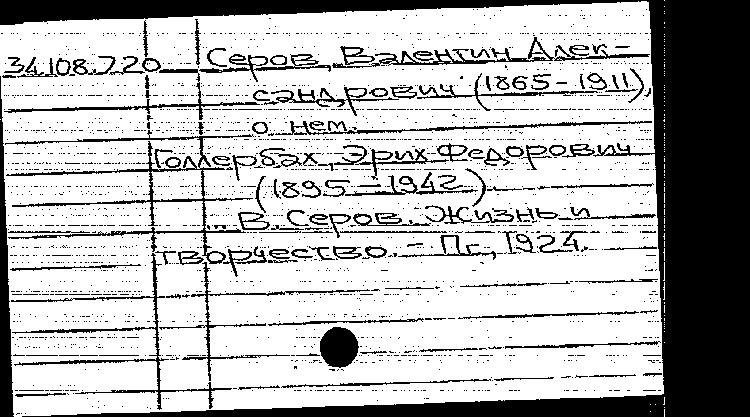 34.108.7.20 Серов, Валентин Алек-
сандрович (1865-1911),
о нем.
Голлербах, Эрих Федорович
(1895-1942).
... В. Серов. Жизнь и
творчество. - Пг., 1924.